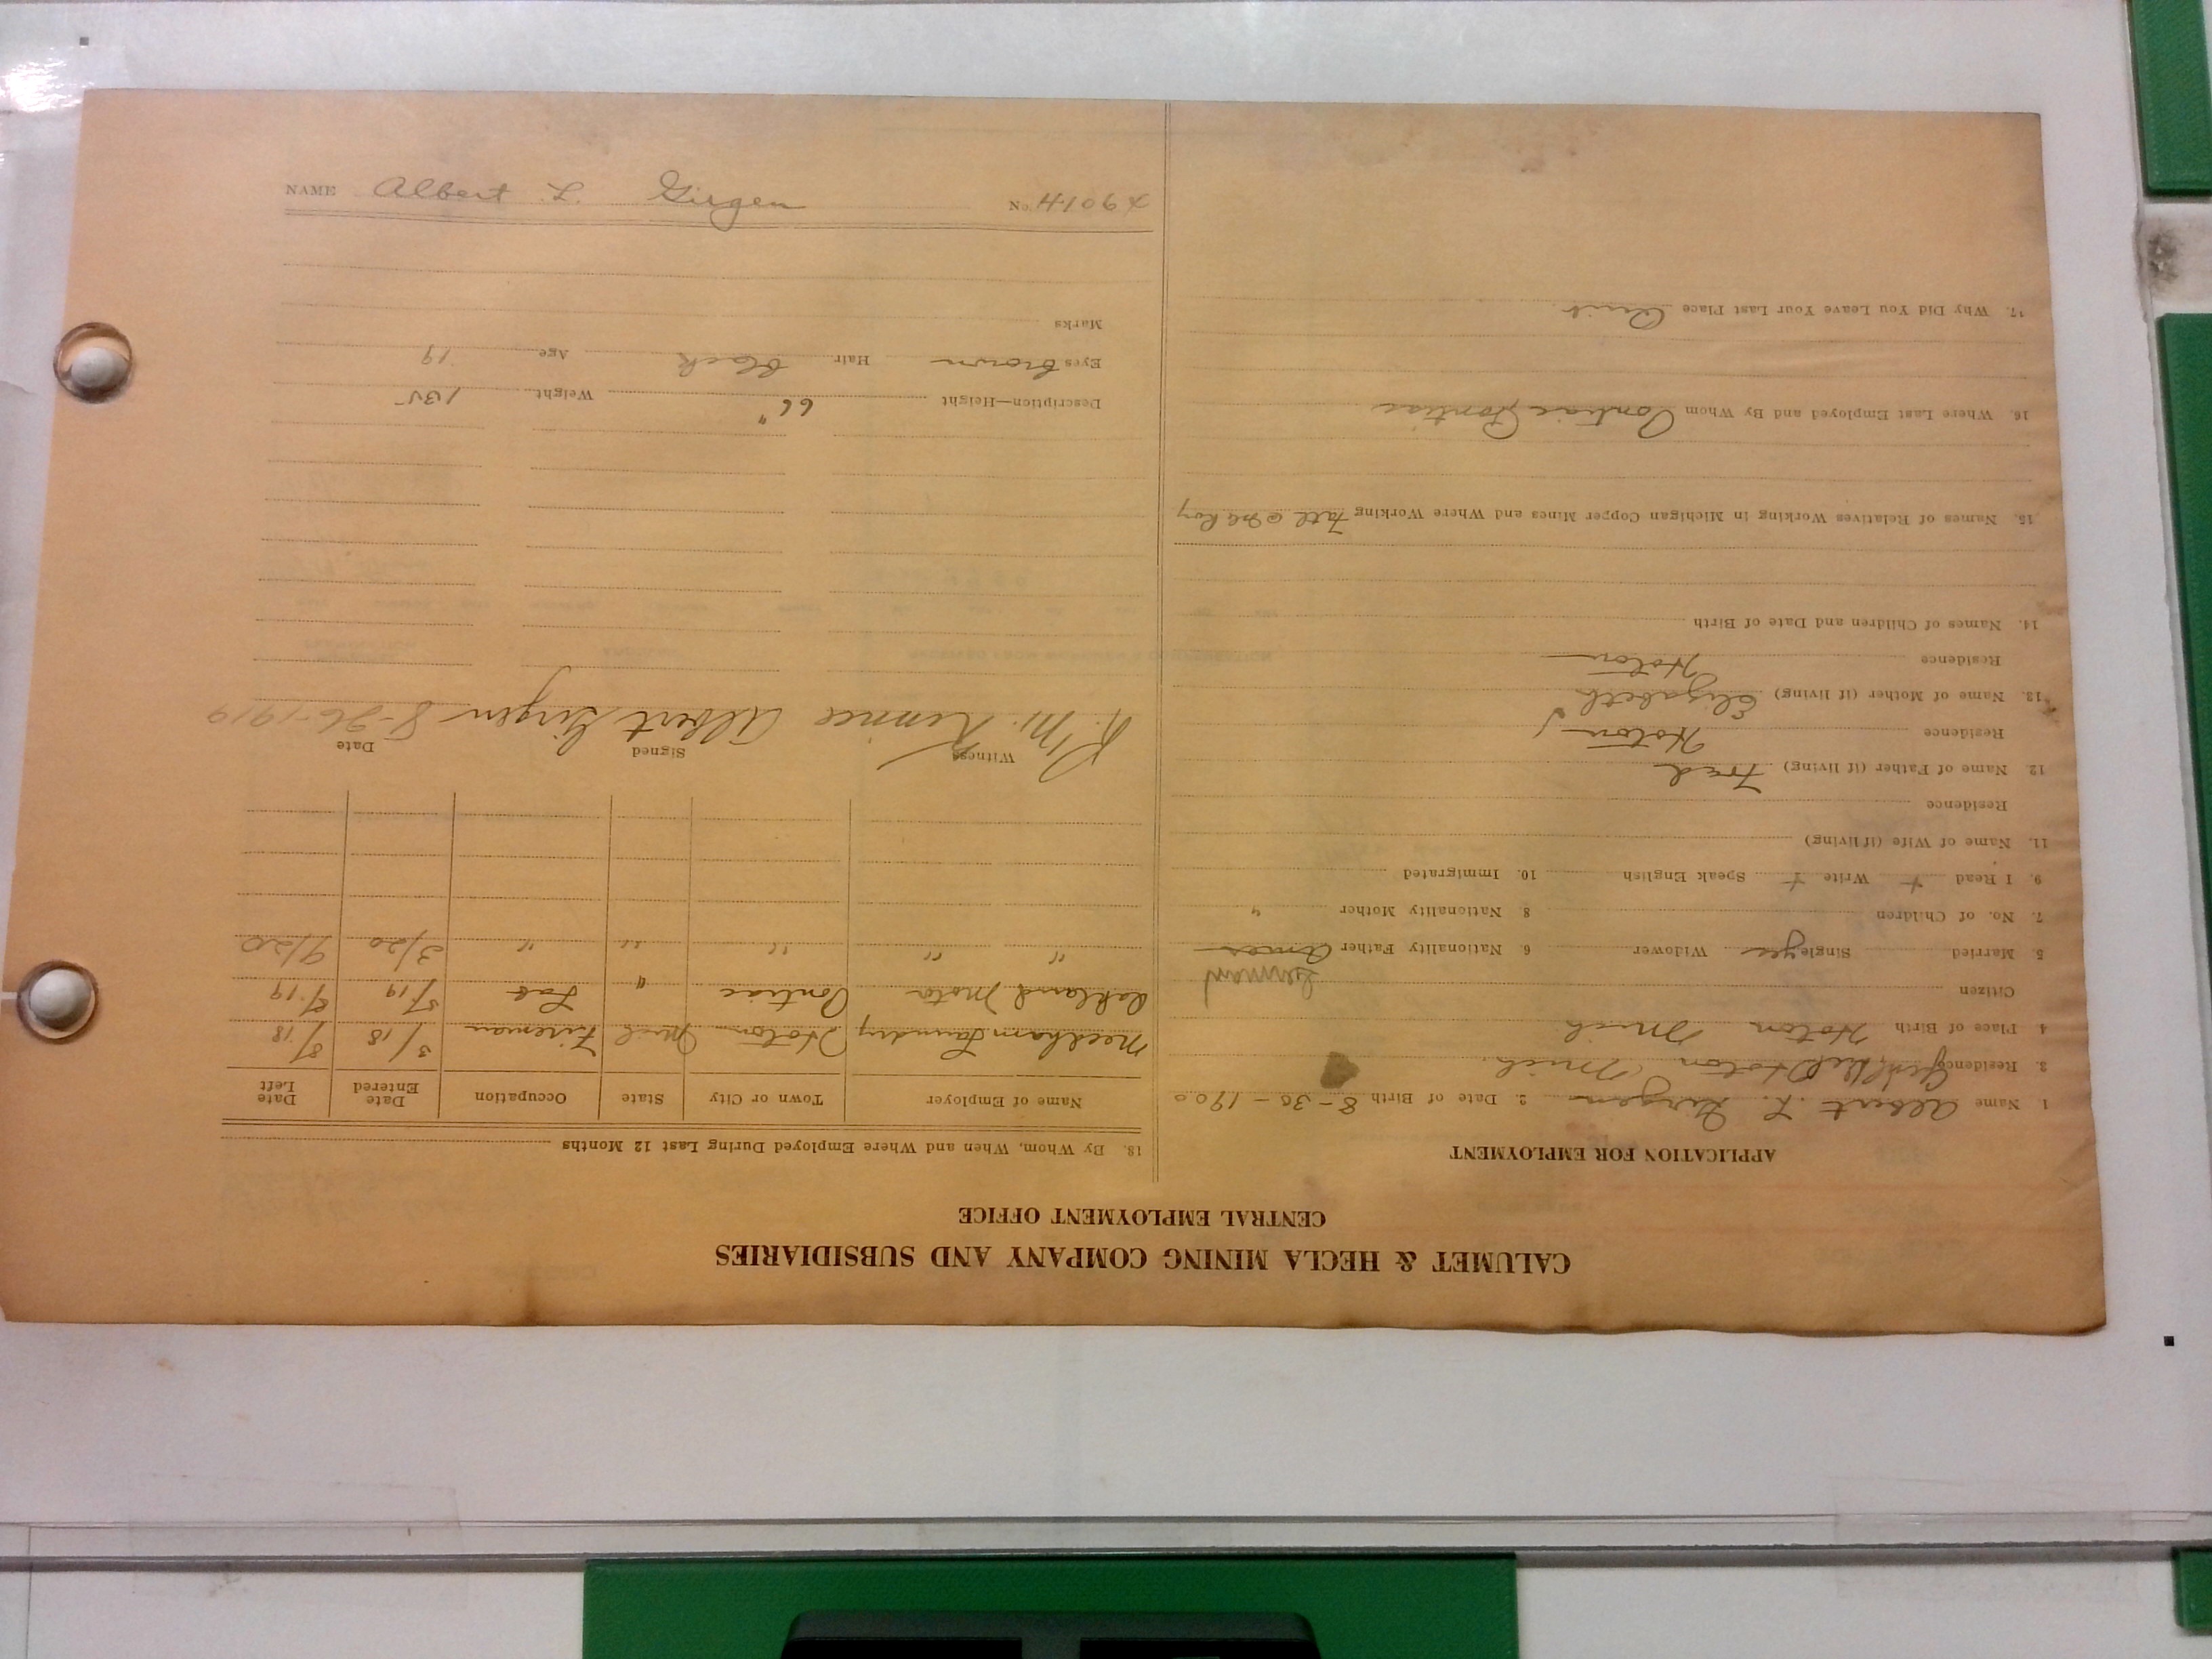 CALUMET & HECLA MINING COMPANY AND SUBSIDIARIES
CENTRAL EMPLOYMENT OFFICE
APPLICATION FOR EMPLOYMENT
1 Name Albert L. Girgen 2. Date of Birth 8-30-1900
3. Residence Hoton Mich.
4 Place of Birth Hoton Mich
Citizen German
5 Married Single yes Widower 6 Nationality Father Amer
7. No. of Children 8 Nationality Mother "
9. I Read + Write + Speak English 10. Immigrated
11. Name of Wife (if living)
Residence
12. Name of Father (if living) Fred
Residence Hoton
13. Name of Mother (if living) Elizabeth
Residence Hoton
14. Names of Children and Date of Birth
15. Names of Relatives Working in Michigan Copper Mines and Where Working Fath @ Isle Roy
16. Where Last Employed and By Whom Pontiac Pontiac
17. Why Did You Leave Your Last Place Quit
18. By Whom, When and Where Employed During Last 12 Months
Name of Employer Town or City State Occupation Date Entered Date Left
Meecham Laundry Hoton Mich Fireman 3/18 8/18
Oakland Motor Pontiac " Lab 5/19 8/19
" " " " " 3/20 9/20
Witness Signed Date
R. M. Albert Girgen 8-26-1919
Description—Height 66" Weight 135
Eyes brown Hair black Age 19
Marks
NAME Albert L. Girgen No. 41064